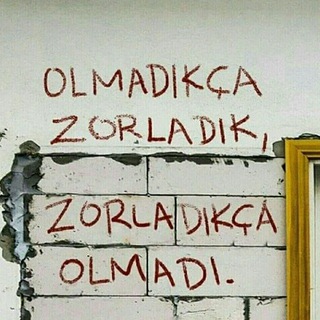 OLMADIKÇA
ZORLADIK,
ZORLADIKÇA
OLMADI.